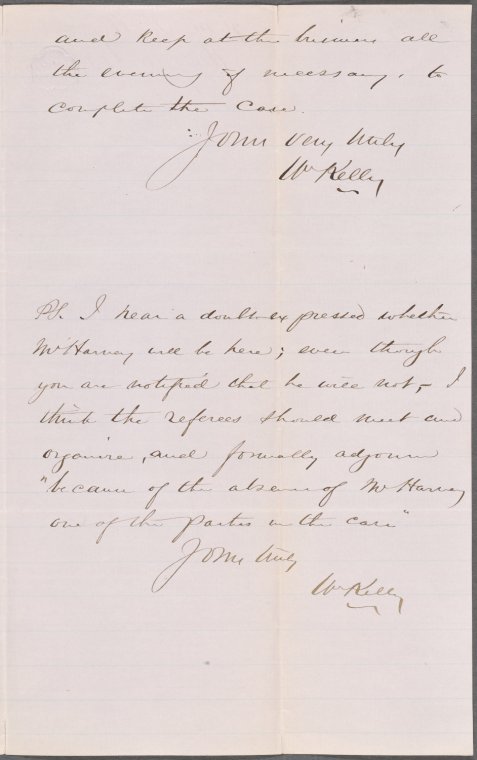 and keep at the business all
the evening if necessary, to
complete the case.
Yours very truly
Wm Kelly
PS. I hear a doubt expressed whether
Mr Harvey will be here; even though
you are notified that he will not, – I
think the referees should meet and
organize, and formally adjourn
"because of the absence of Mr Harvey
one of the parties in the case"
Yours truly
Wm Kelly